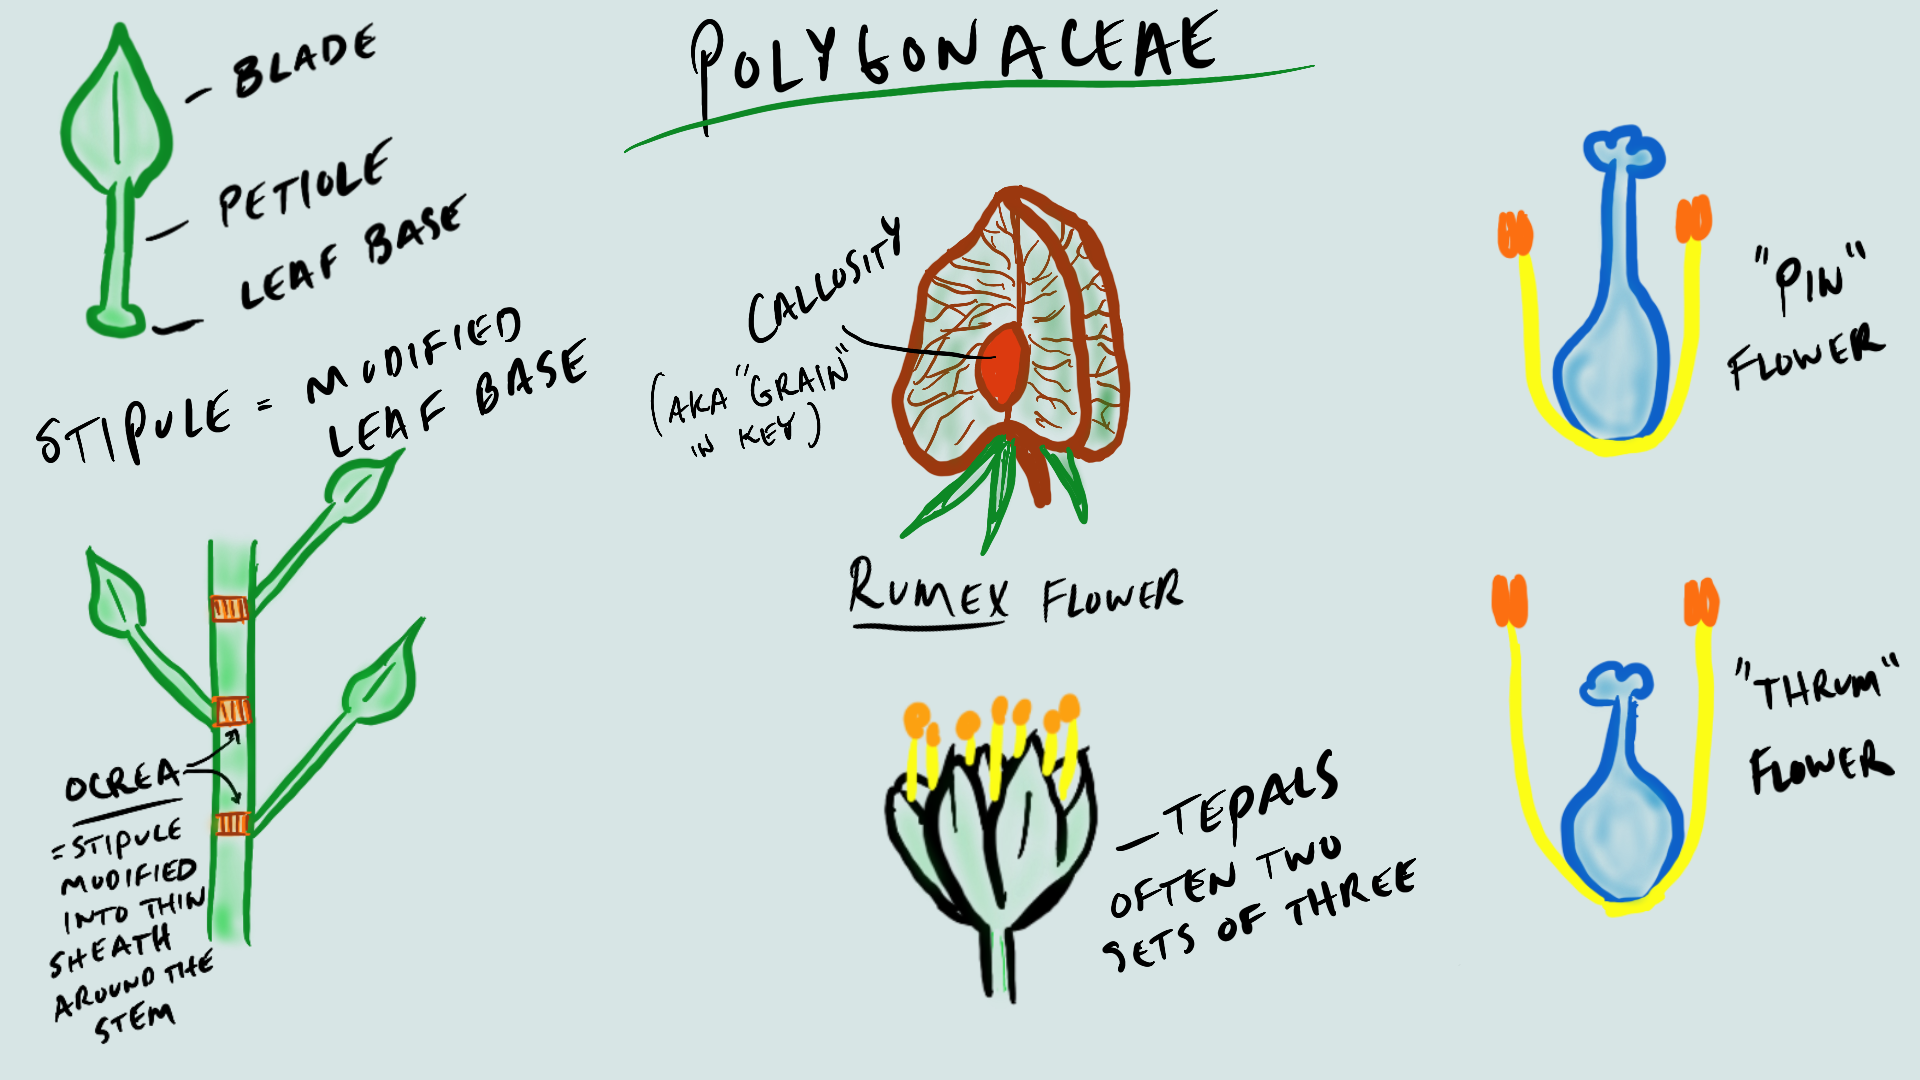 POLYGONACEAE
BLADE
PETIOLE
LEAF BASE
STIPULE = MODIFIED
LEAF BASE
OCREA
=STIPULE
MODIFIED
INTO THIN
SHEATH
AROUND THE
STEM
CALLOSITY
(AKA "GRAIN"
IN KEY)
RUMEX FLOWER
TEPALS
OFTEN TWO
SETS OF THREE
"PIN"
FLOWER
"THRUM"
FLOWER